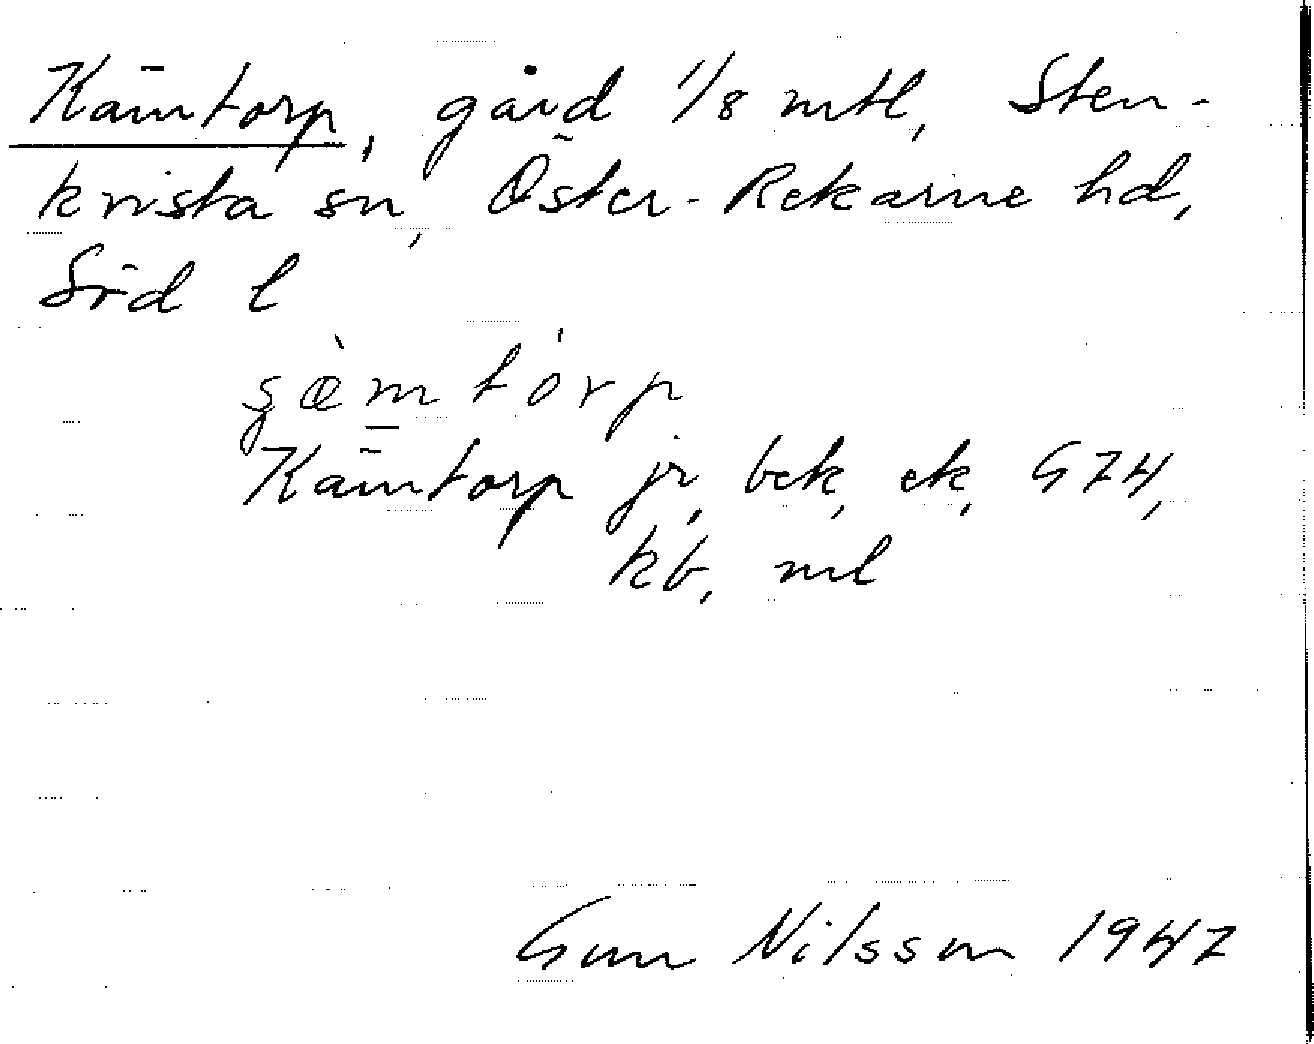 Kämtorp, gård 1/8 mtl, Sten-
kvista sn, Öster-Rekarne hd,
Söd l
şæ̀m tórp
Kämtorp jr, bek, ek, GZH,
kb, ml
Gun Nilsson 1947